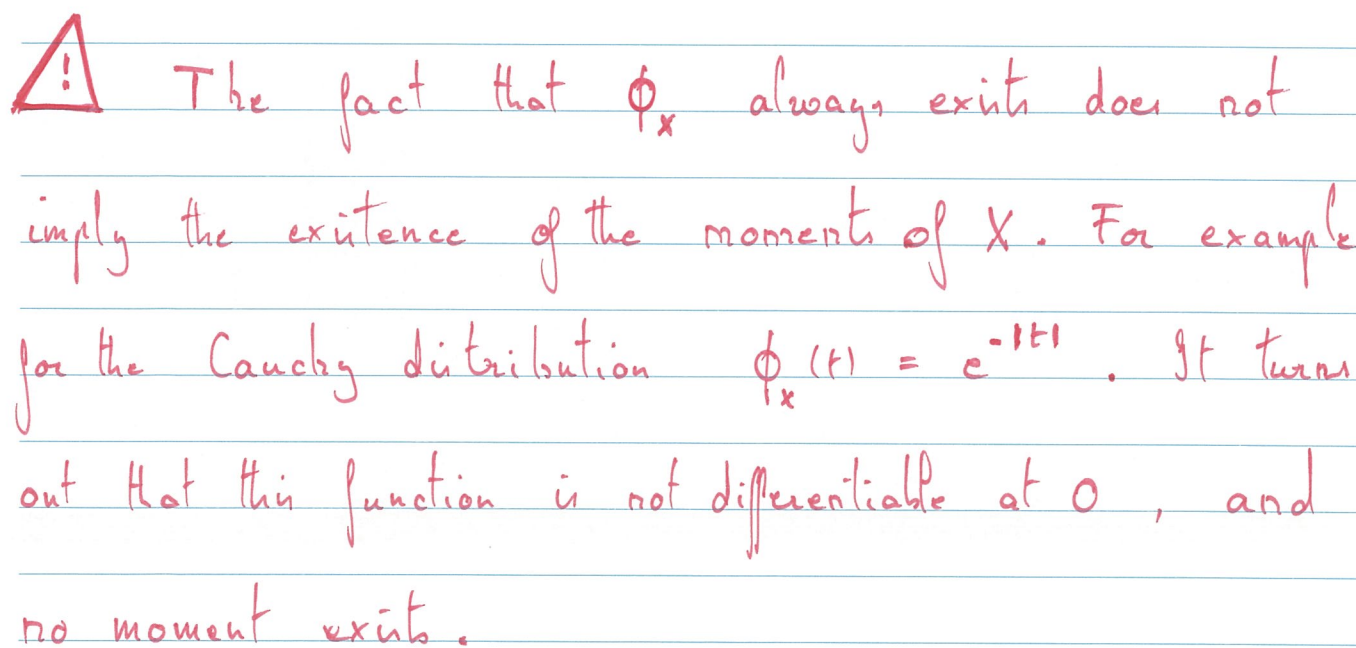 ! The fact that ϕ_X always exists does not
imply the existence of the moments of X. For example
for the Cauchy distribution ϕ_X(t) = e^{-|t|}. It turns
out that this function is not differentiable at 0, and
no moment exists.